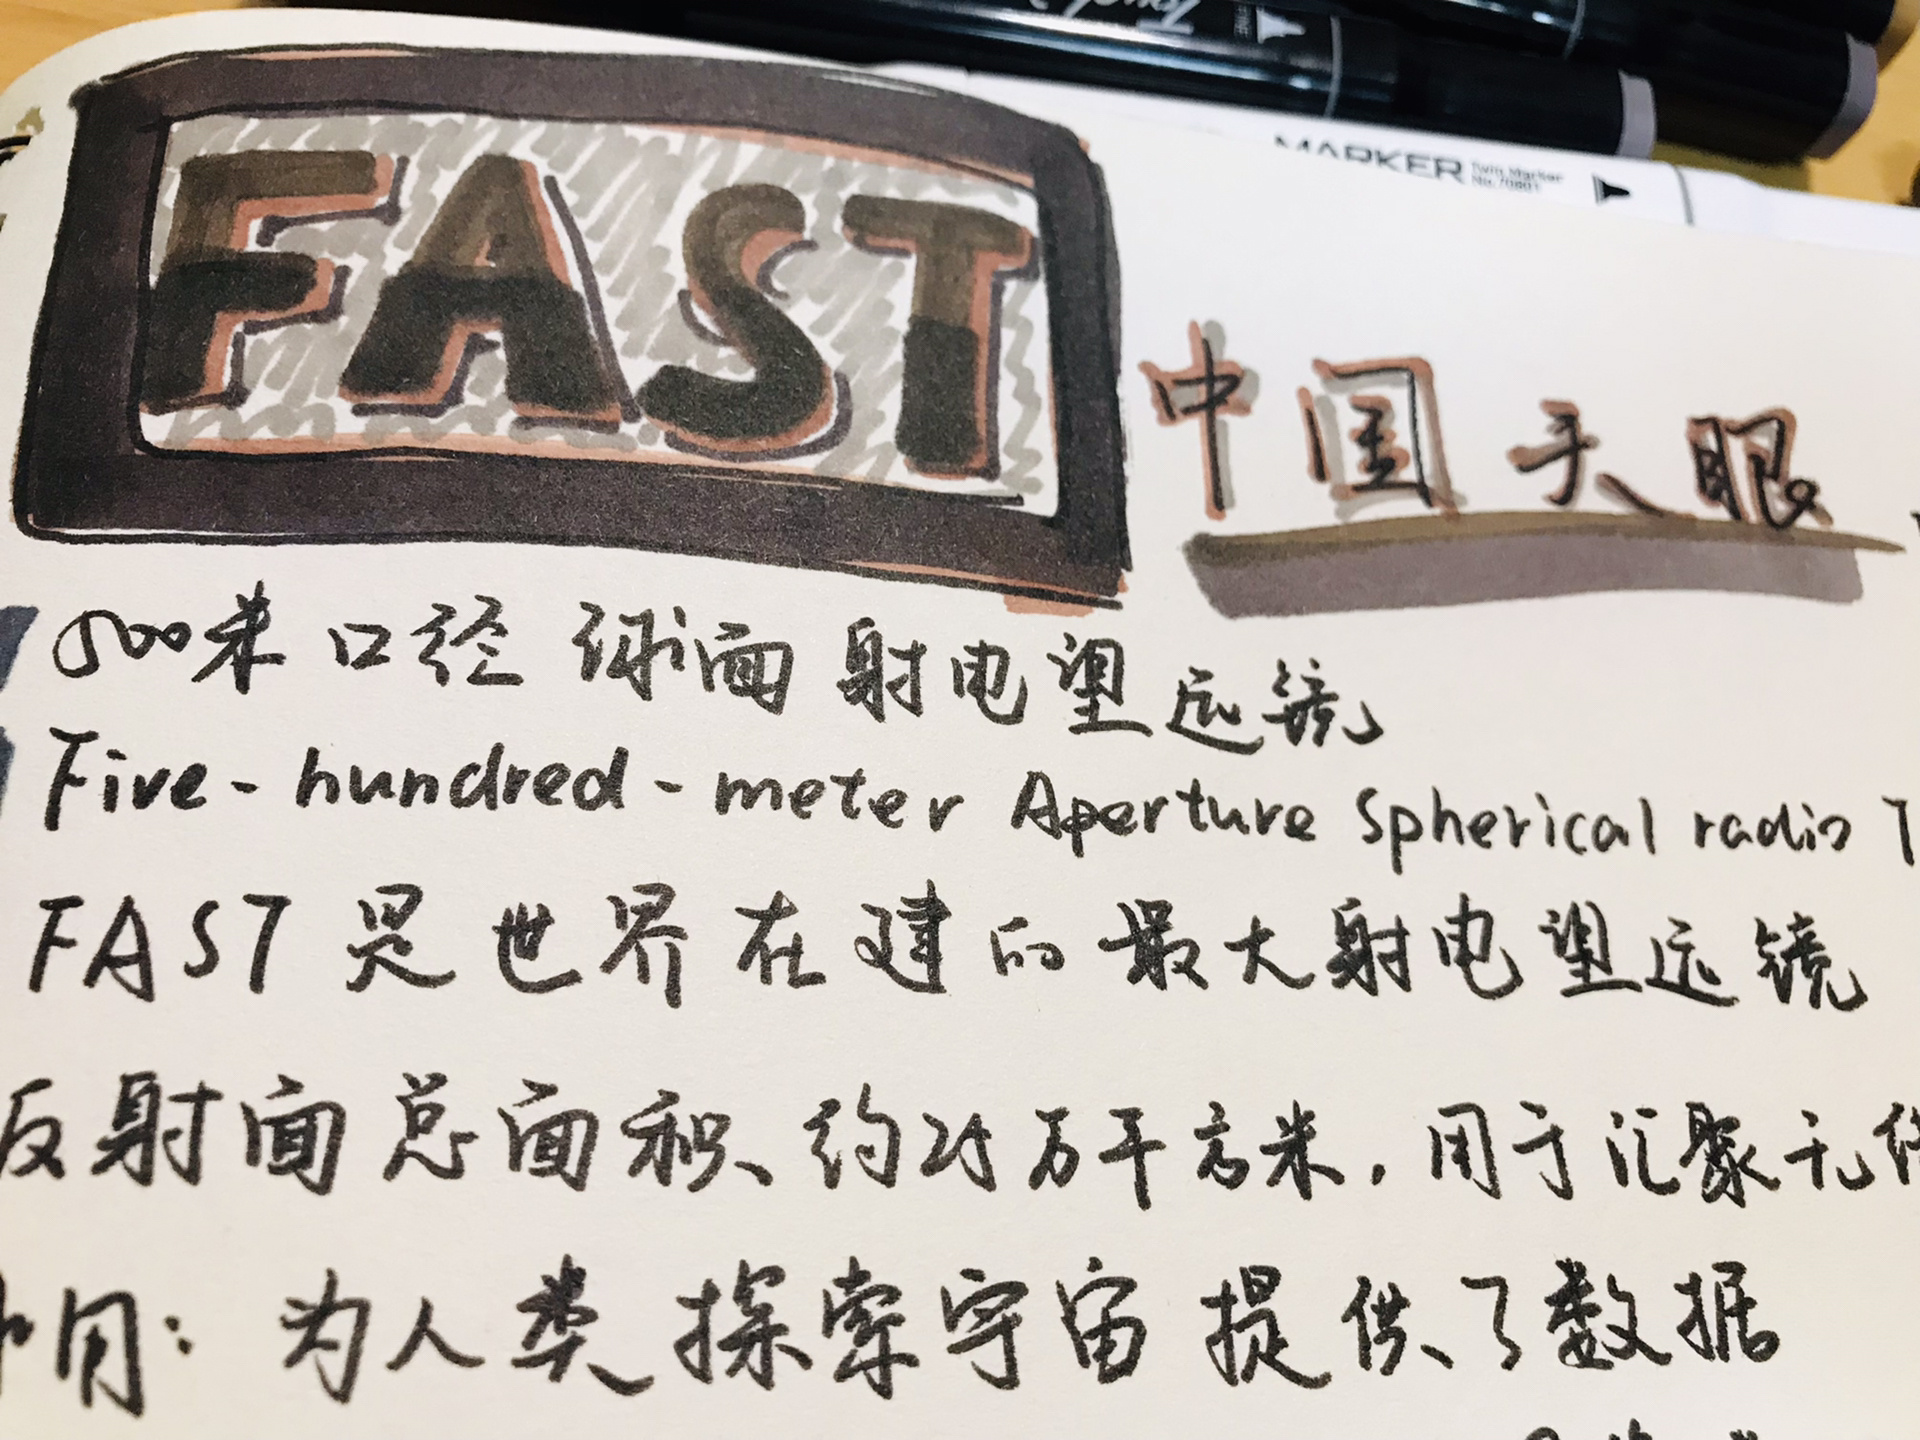 MARKER Twin Marker
No.70801
FAST
中国天眼
500米口径球面射电望远镜
Five-hundred-meter Aperture Spherical radio T
FAST是世界在建的最大射电望远镜
反射面总面积、约25万平方米，用于汇聚无
用：为人类探索宇宙提供了数据